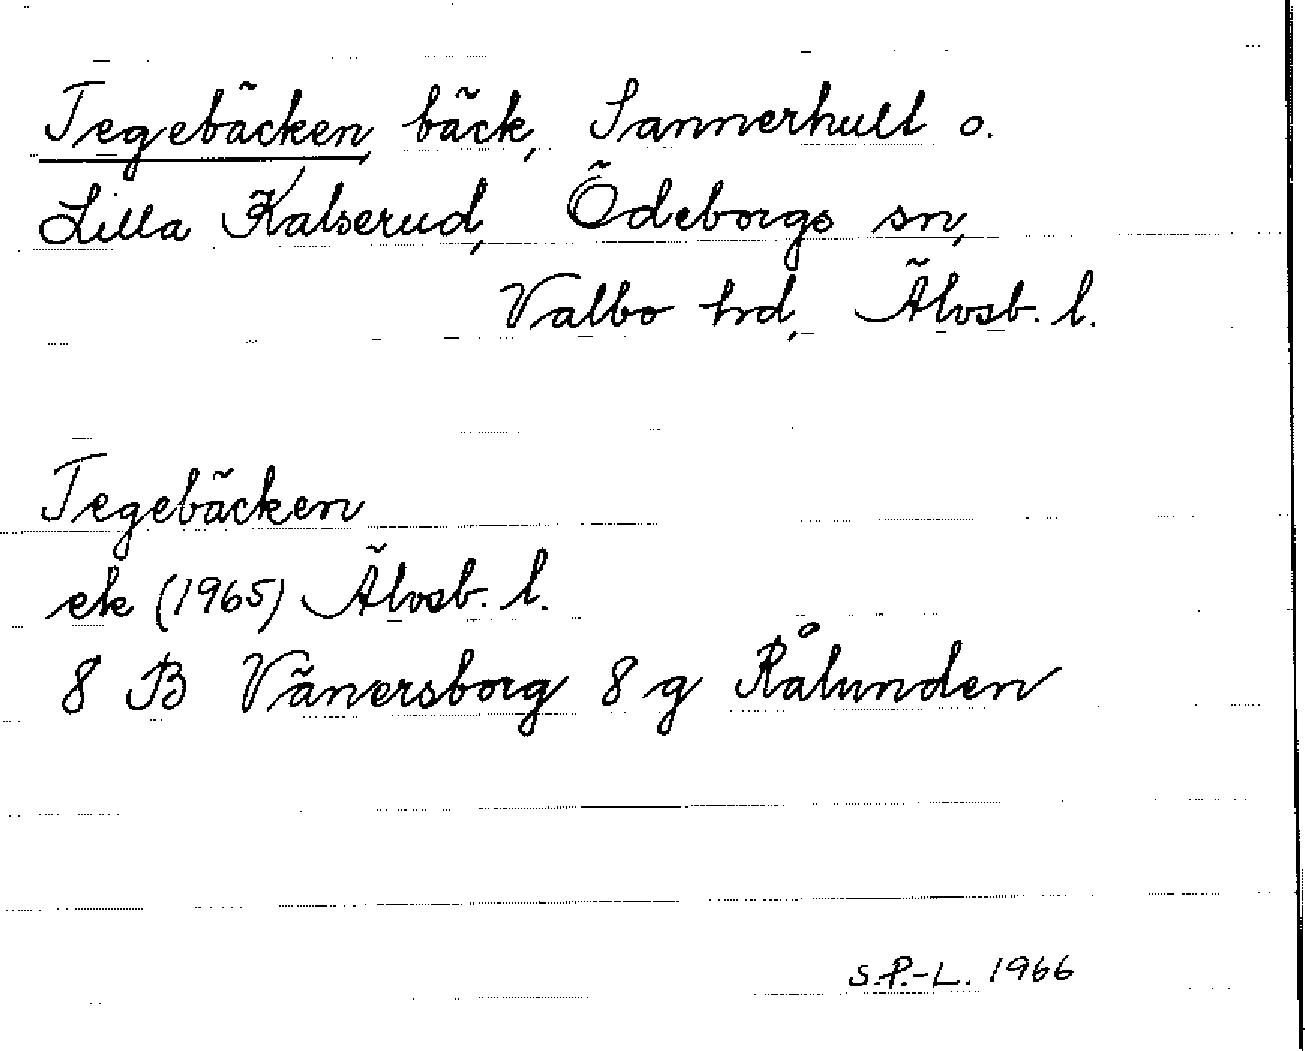 Tegebäcken, bäck, Sannerhult o.
Lilla Kalserud, Ödeborgs sn,
Valbo hd, Älvsb. l.
Tegebäcken
ek (1965) Älvsb. l.
8 B Vänersborg 8 g Rålunden
S.P.-L. 1966